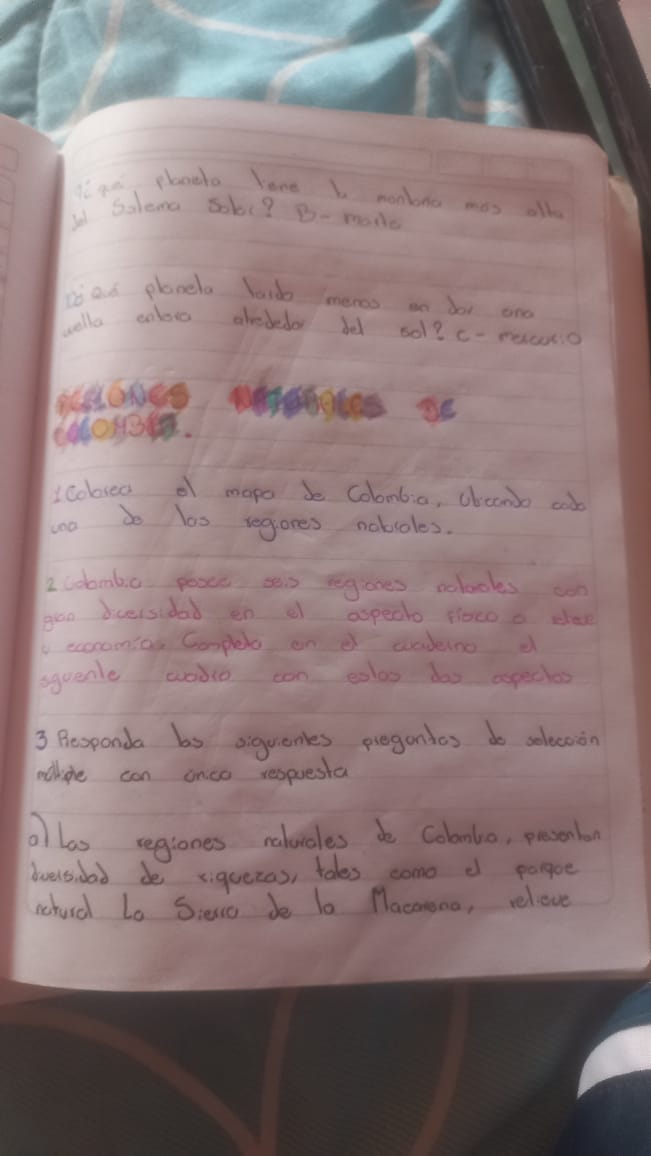 qué planeta tiene la montaña mas alta
del Sistema Solar? B- marte
10 Qué planeta tarda menos en dar una
vuelta entera alrededor del sol? C- mercurio
REGIONES NATURALES DE
COLOMBIA.
1 Colorea el mapa de Colombia, Ubicando cada
una de las regiones naturales.
2 Colombia posee seis regiones naturales con
gran diversidad en el aspecto físico
y economía. Completa en el cuaderno el
siguente cuadro con estos dos aspectos
3 Responda las siguientes preguntas de selección
múltiple con única respuesta
a) Las regiones naturales de Colombia, presentan
diversidad de riquezas, tales como el parque
natural La Sierra de la Macarena, relieve